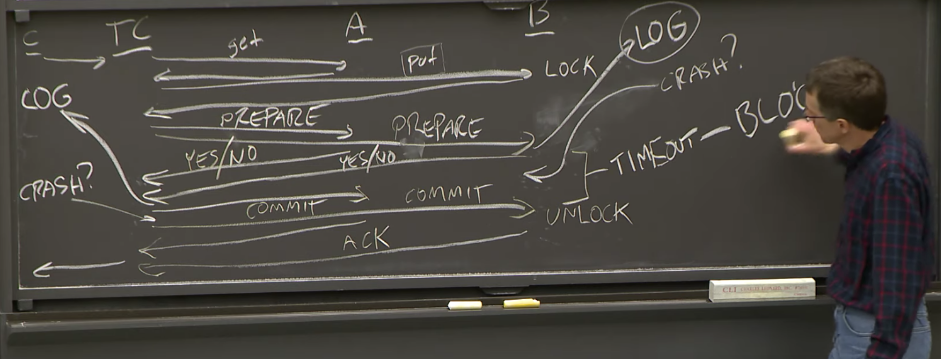 C TC A B LOG
get
put
LOCK
CRASH?
LOG
PREPARE PREPARE
YES/NO YES/NO
TIMEOUT - BLOC
CRASH?
COMMIT COMMIT
UNLOCK
ACK